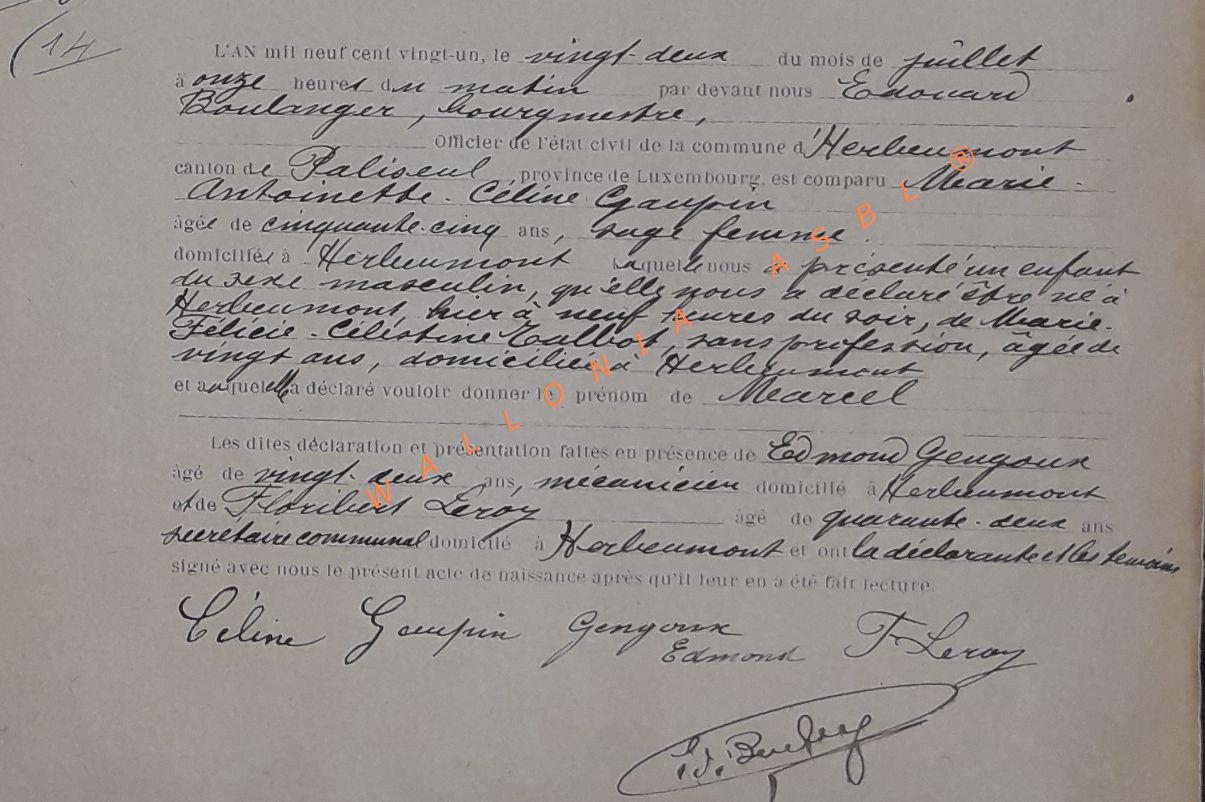 14
L'AN mil neuf cent vingt-un, le vingt-deux du mois de juillet
à onze heures du matin par devant nous Edouard
Boulanger, bourgmestre,
Officier de l'état civil de la commune d'Herbeumont
canton de Paliseul province de Luxembourg, est comparu Marie-
Antoinette-Céline Gaupin
âgée de cinquante-cinq ans, sage femme
domiciliée à Herbeumont laquelle nous a présenté un enfant
du sexe masculin, qu'elle nous a déclaré être né à
Herbeumont, hier à neuf heures du soir, de Marie-
Félicie-Célestine Talbot, sans profession, âgée de
vingt ans, domiciliée à Herbeumont
et auquel elle a déclaré vouloir donner le prénom de Marcel
Les dites déclaration et présentation faites en présence de Edmond Gengoux
âgé de vingt-deux ans, mécanicien domicilié à Herbeumont
et de Floribert Leroy âgé de quarante-deux ans
secrétaire communal domicilé à Herbeumont et ont la déclarante et les témoins
signé avec nous le présent acte de naissance après qu'il leur en a été fait lecture.
Céline Gaupin Gengoux F Leroy
Edmond
WALLONIA ASBL ®